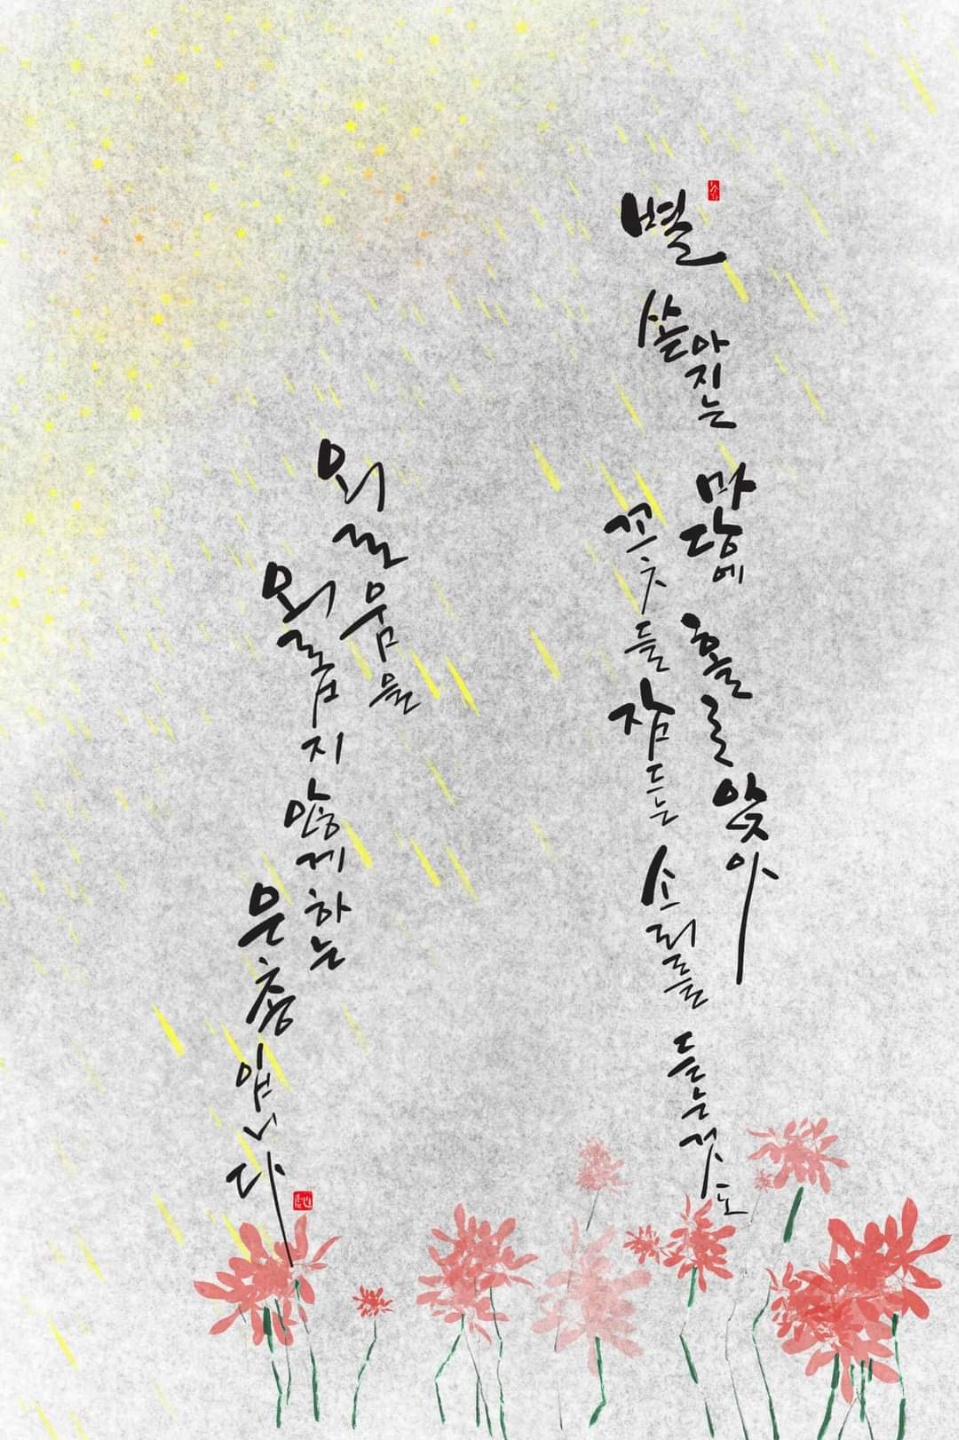 별 쏟아지는 마당에 홀로 앉아
꽃들 잠드는 소리를 듣는 것도
외로움을
외롭지 않게 하는
은총입니다